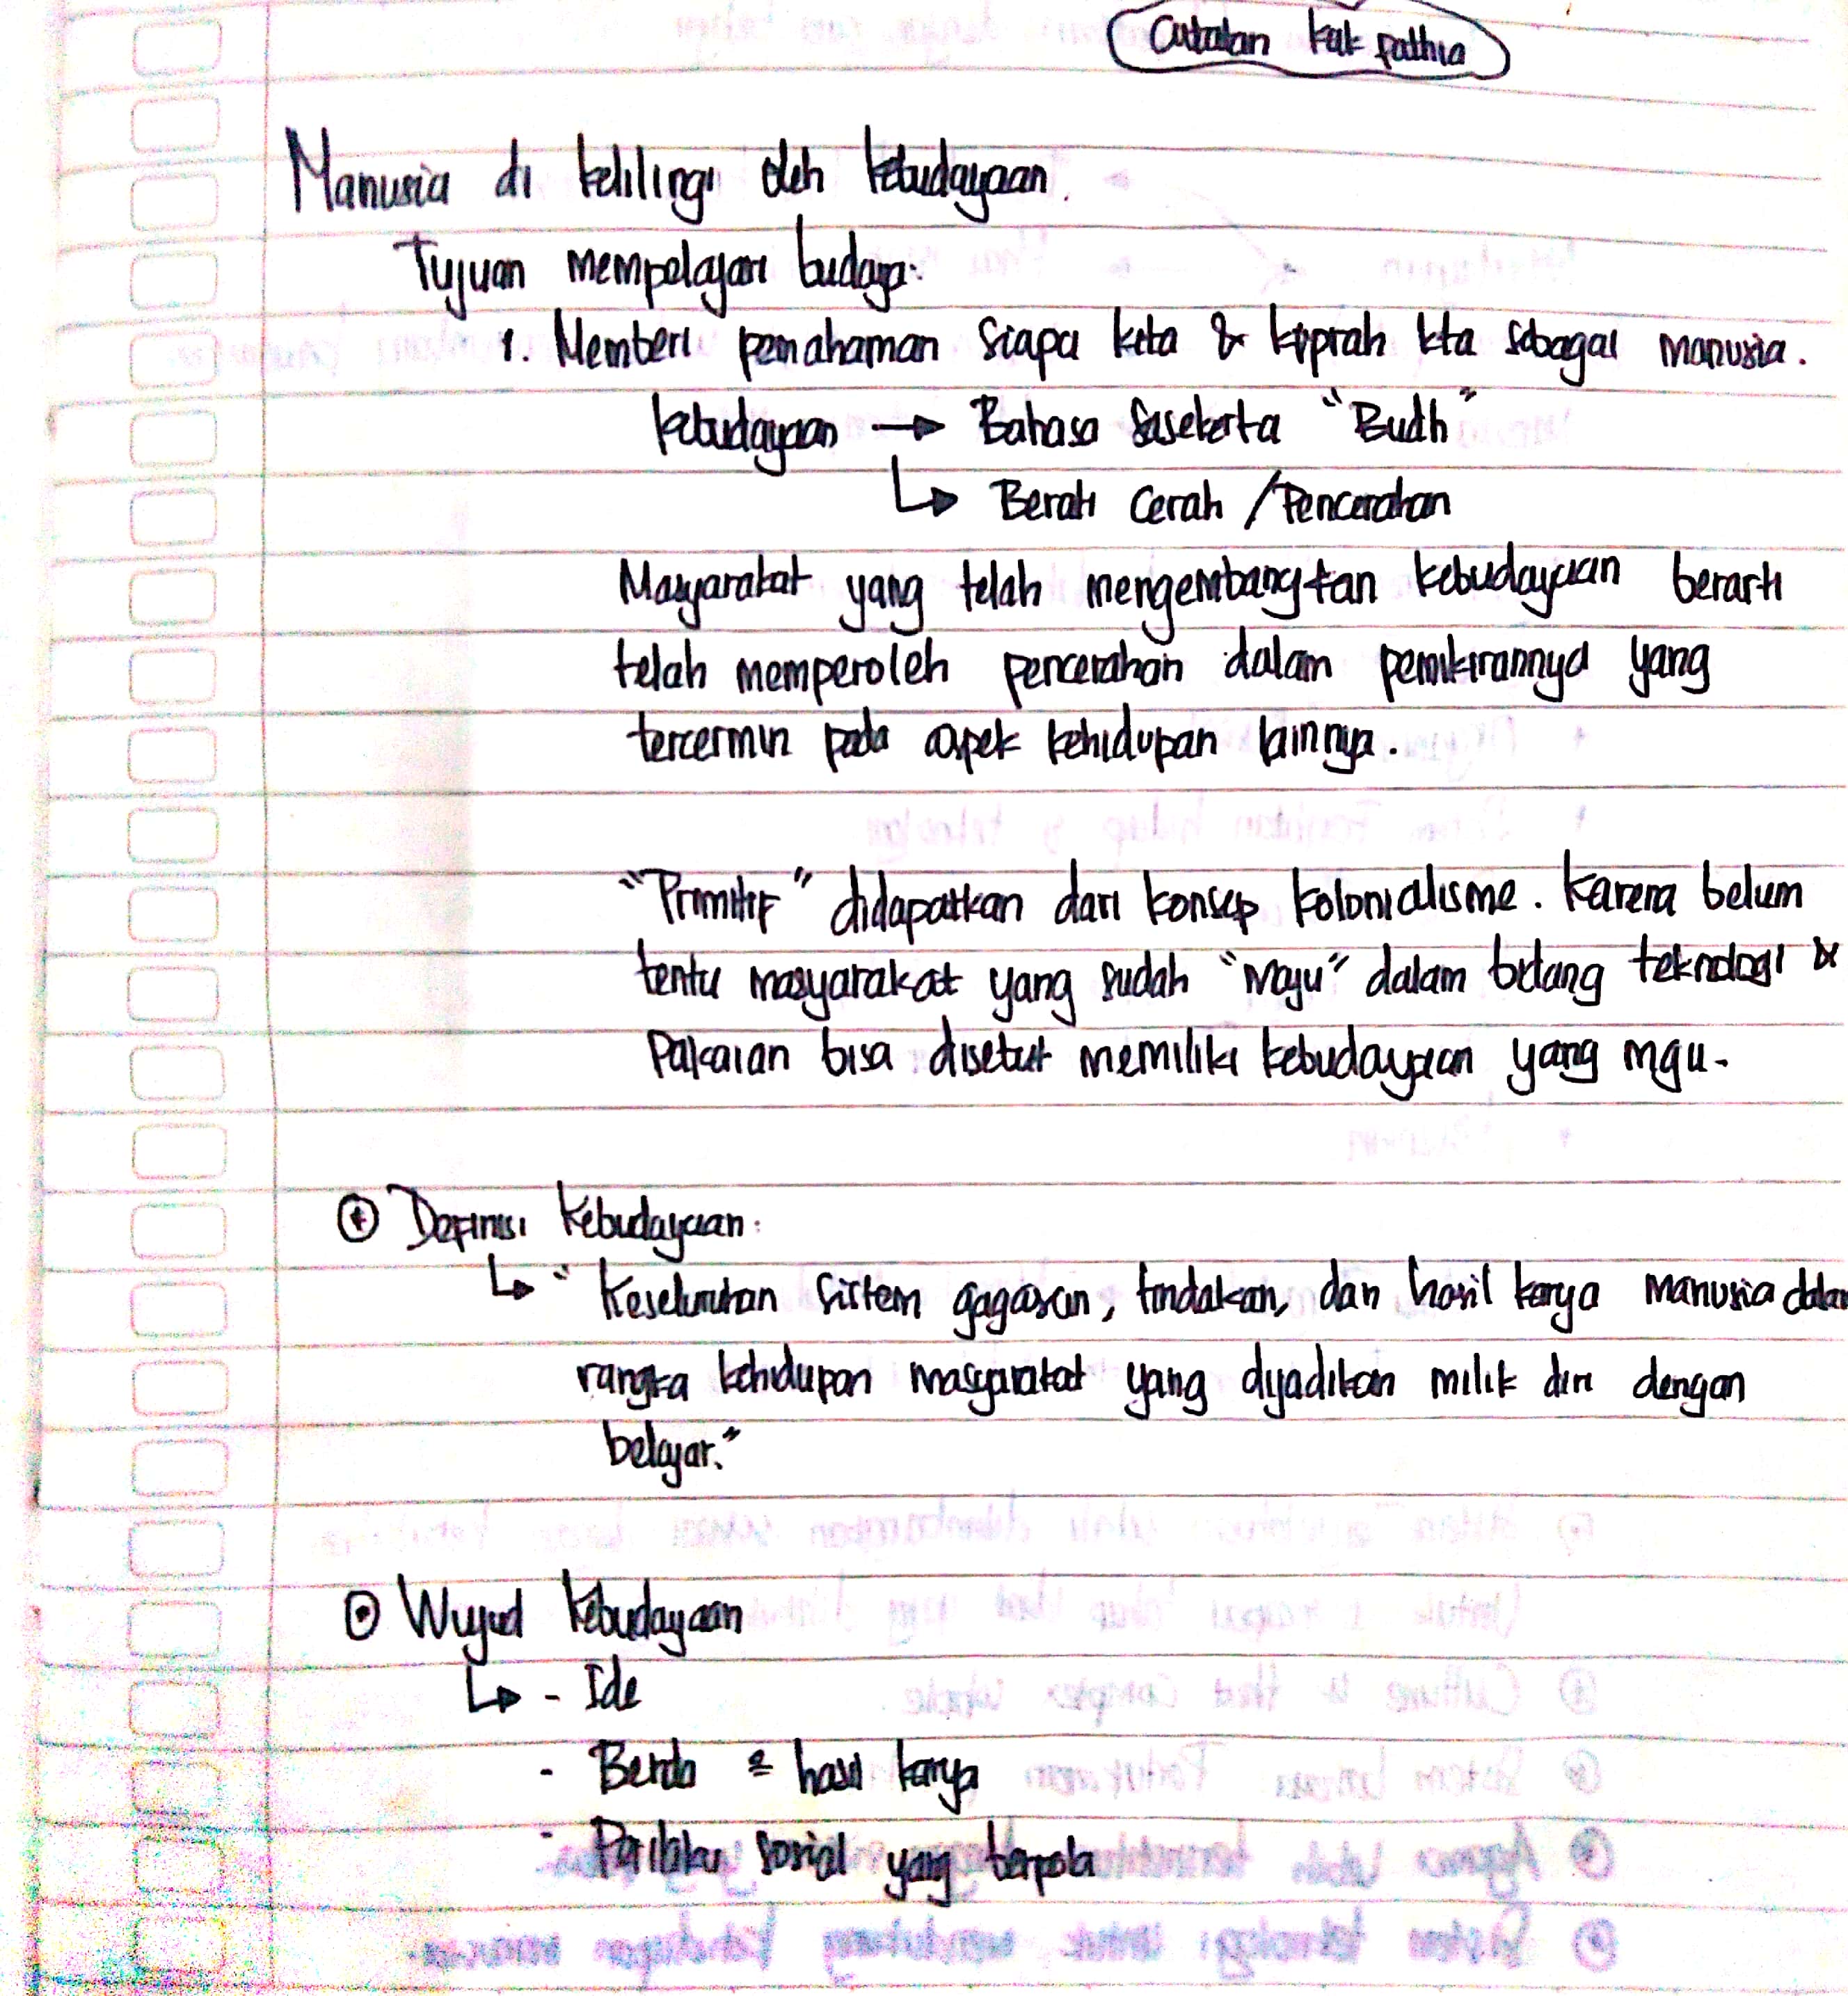 Catatan kak fathia
Manusia di kelilingi oleh kebudayaan.
Tujuan mempelajari budaya:
1. Memberi pemahaman siapa kita & kiprah kita sebagai manusia.
kebudayaan → Bahasa Sasekerta "Budh"
↳ Berarti Cerah / Pencerahan
Masyarakat yang telah mengembangkan kebudayaan berarti
telah memperoleh pencerahan dalam pemikirannya yang
tercermin pada aspek kehidupan lainnya.
"Primitif" didapatkan dari konsep kolonialisme. Karena belum
tentu masyarakat yang sudah "maju" dalam bidang teknologi &
Pakaian bisa disebut memiliki kebudayaan yang maju.
Definisi Kebudayaan:
↳ "Keseluruhan sistem gagasan, tindakan, dan hasil karya manusia dalam
rangka kehidupan masyarakat yang dijadikan milik diri dengan
belajar."
Wujud Kebudayaan
↳ - Ide
- Benda = hasil karya
- Perilaku sosial yang terpola